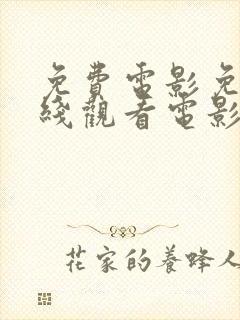 免費電影免
綫觀看電影
花家的養蜂人